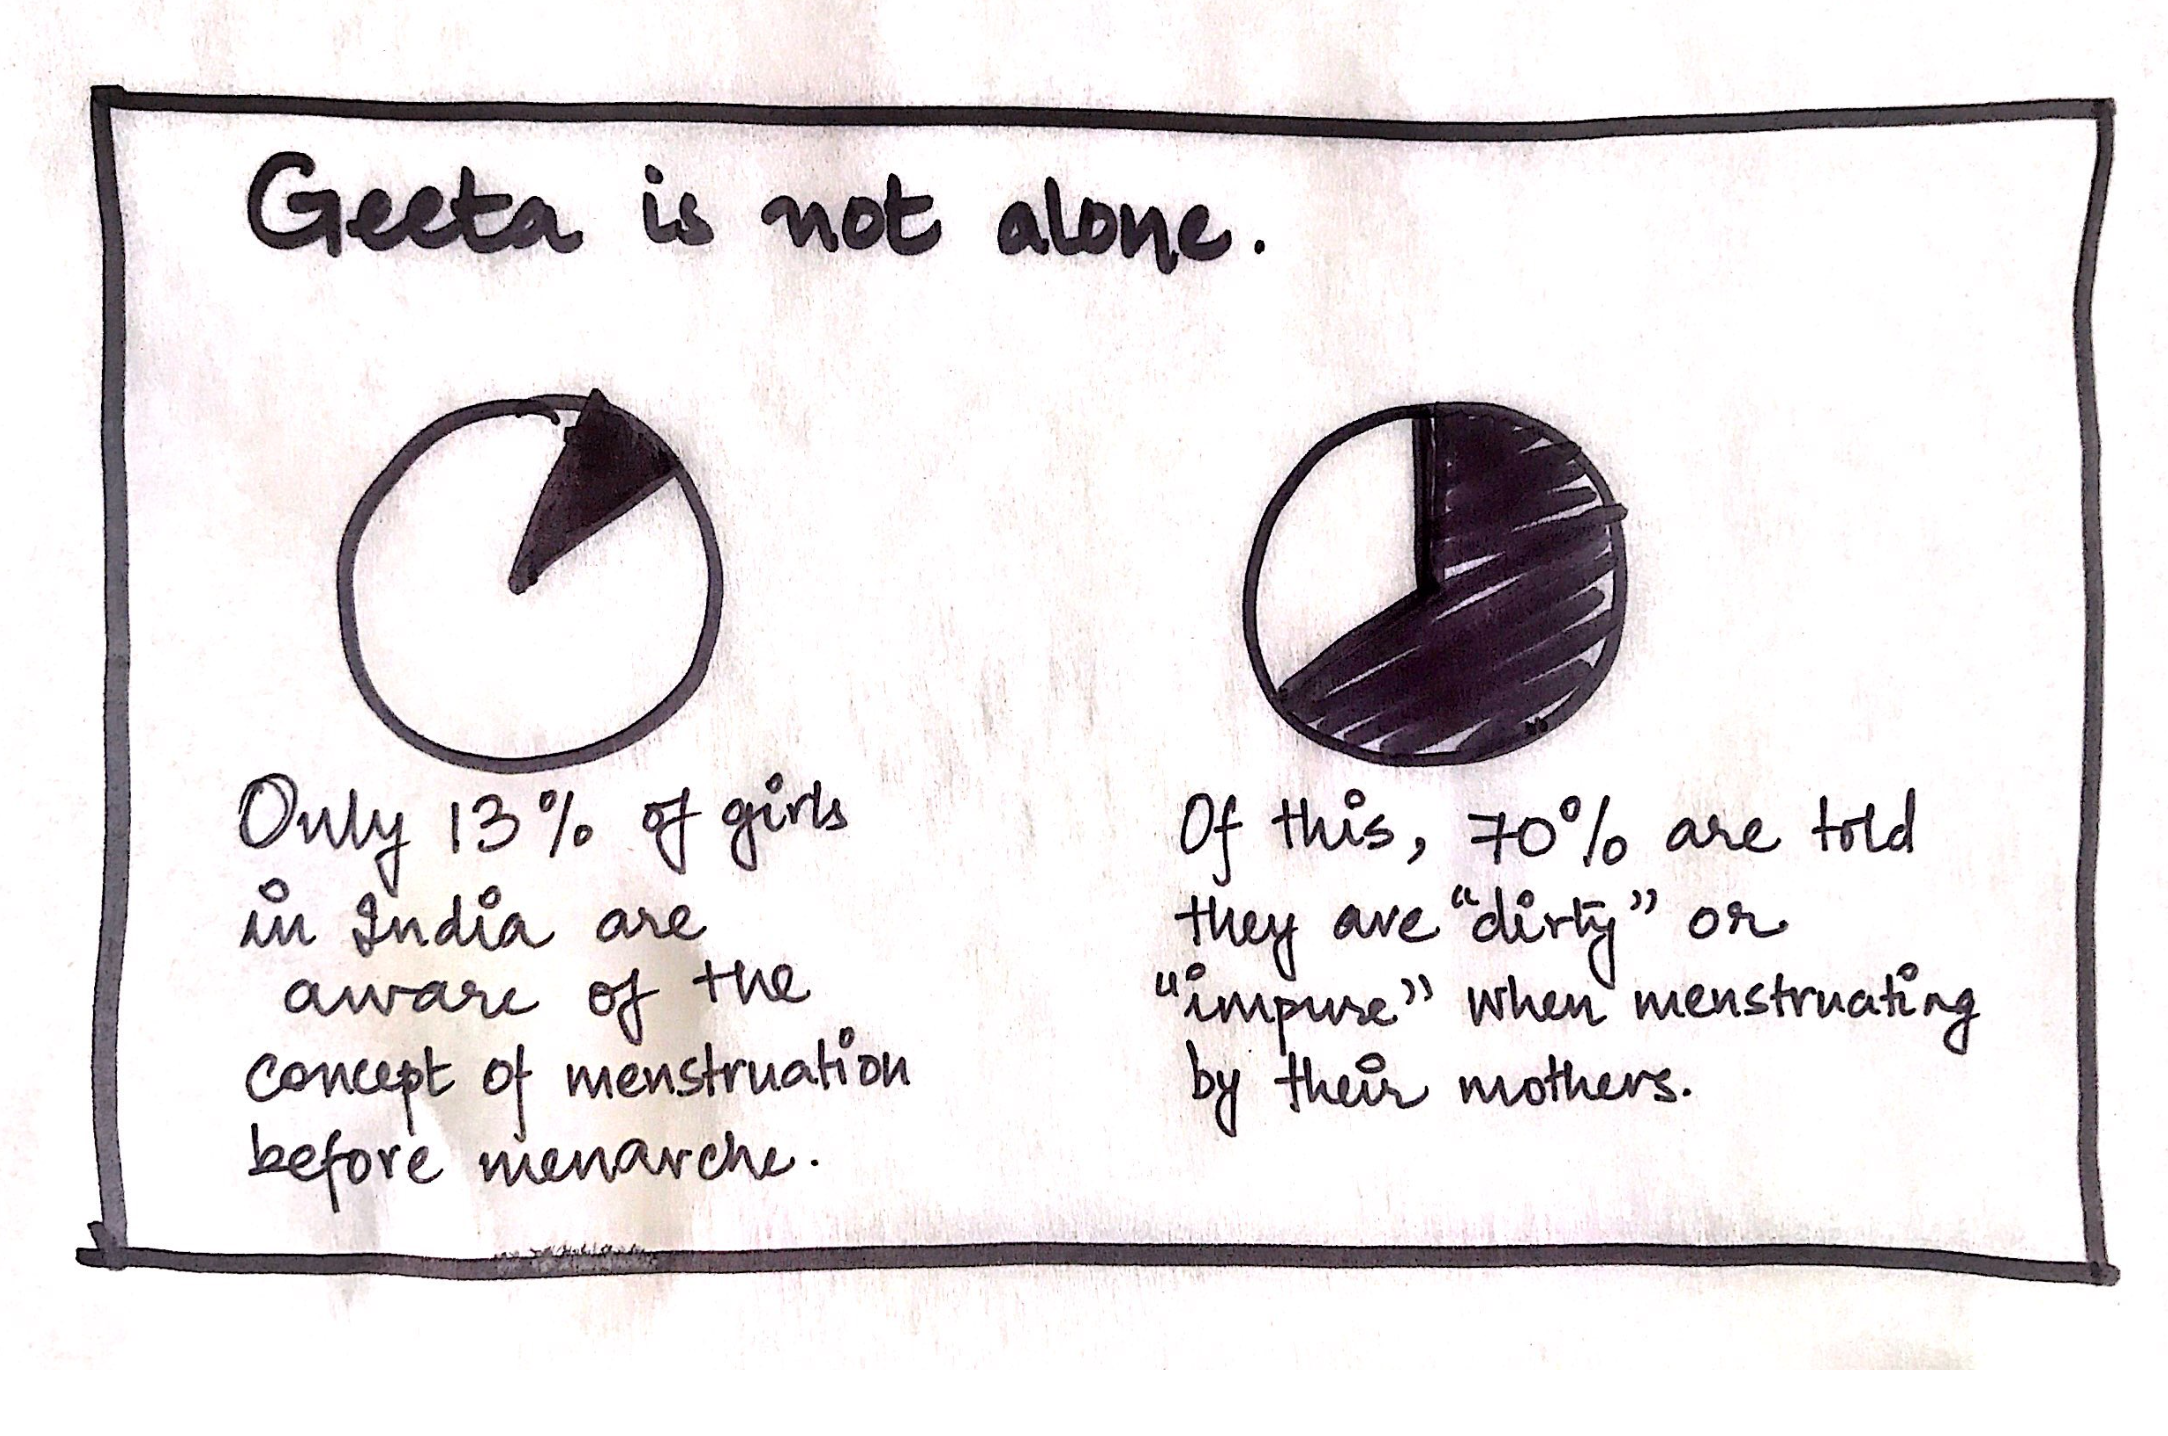 Geeta is not alone.
Only 13% of girls
in India are
aware of the
concept of menstruation
before menarche.
Of this, 70% are told
they are "dirty" or
"impure" when menstruating
by their mothers.